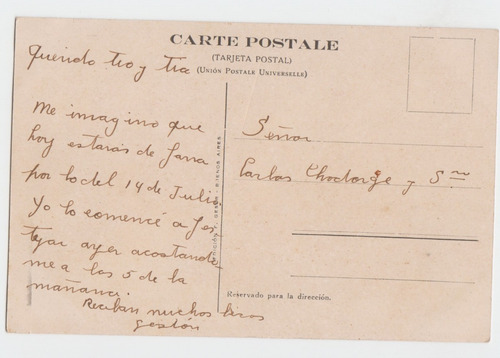 CARTE POSTALE
(TARJETA POSTAL)
(UNIÓN POSTALE UNIVERSELLE)
Querido tio y tia
Me imagino que
hoy estarás de farra
por lo del 14 de Julio
Yo lo comencé a fes
tejar ayer acostando
me a las 5 de la
mañana.
Reciban muchos besos
gastón
BUENOS AIRES
Señor
Carlos y Sra
Reservado para la dirección.